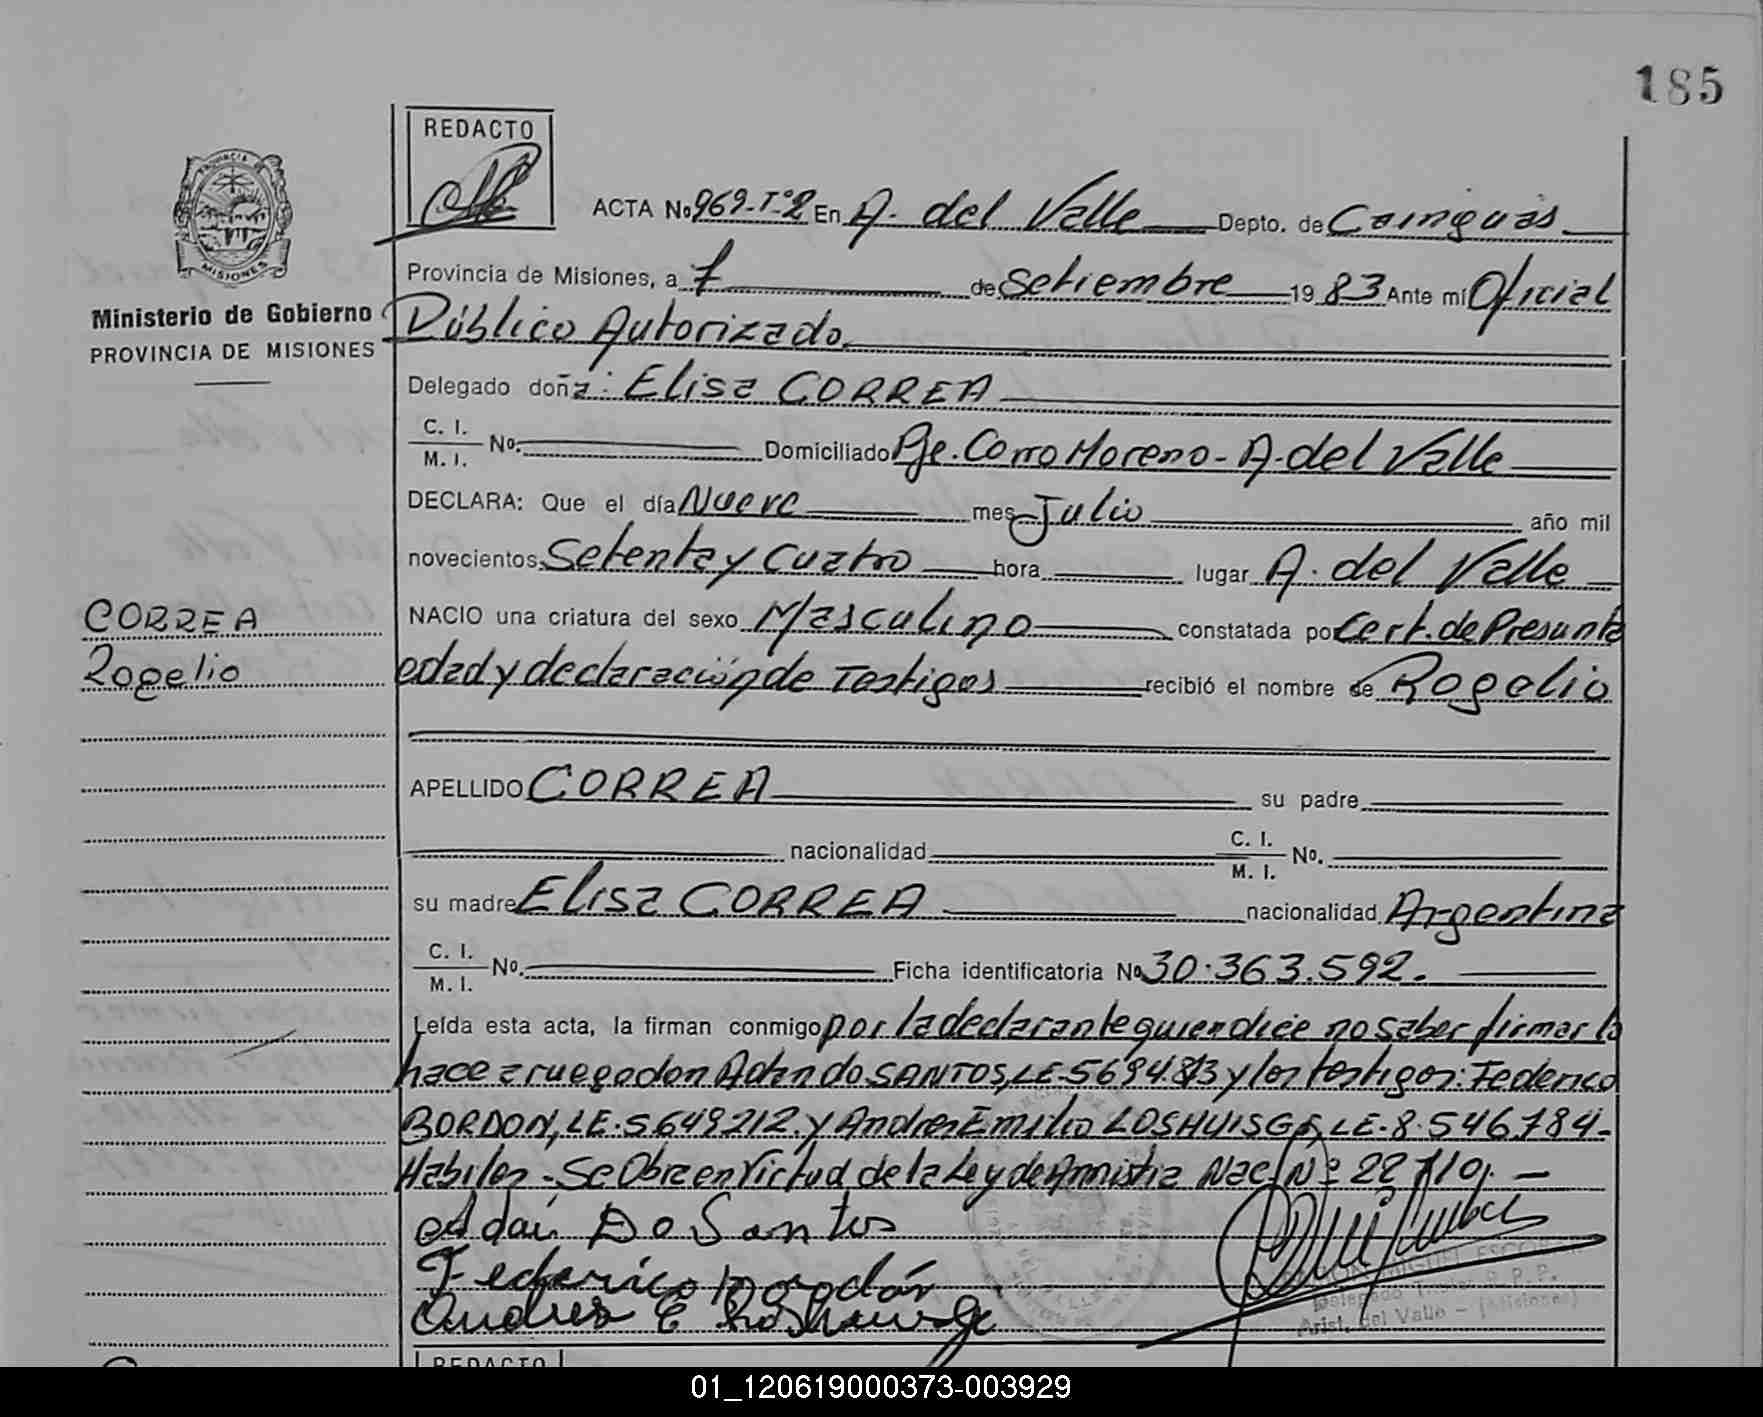 185
REDACTO
ACTA No 969-Tº2 En A. del Valle Depto. de Cainguás
Provincia de Misiones, a 7 de Setiembre 1983 Ante mí Oficial
Ministerio de Gobierno
Público Autorizado
PROVINCIA DE MISIONES
Delegado doña: Elisa CORREA
C. I.
M. I. No. Domiciliado Pje. Cerro Moreno - A. del Valle
DECLARA: Que el día Nueve mes Julio año mil
novecientos Setenta y Cuatro hora lugar A. del Valle
CORREA
NACIO una criatura del sexo Masculino constatada por Cert. de Presunta
Rogelio
edad y declaración de Testigos recibió el nombre de Rogelio
APELLIDO CORREA su padre
nacionalidad C. I.
M. I. No.
su madre Elisa CORREA nacionalidad Argentina
C. I.
M. I. No. Ficha identificatoria No 30.363.592.
Leída esta acta, la firman conmigo por la declarante quien dice no saber firmar lo
hace a ruego don SANTOS, LE 5694.813 y los testigos: Federico
BORDON, LE. 5649212. y Andres Emilio LE. 8.546784.-
Habiles. - Se Obra en Virtud de la Ley de Amnistia Nac. Nº 22
Do Santos
Federico Bordón
Andres E
MIGUEL ESCOBAR
Delegado Titular R. P. P.
Arist. del Valle - (Misiones)
REDACTO
01_120619000373-003929